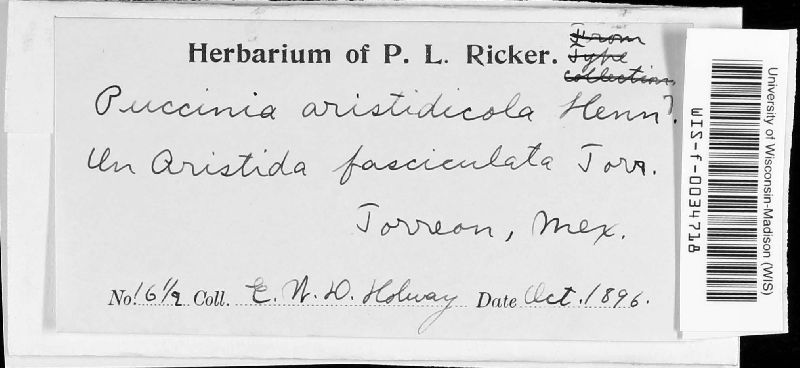 From
Type
collection
Herbarium of P. L. Ricker.
Puccinia aristidicola Henn?.
On Aristida fasciculata Torr.
Torreon, Mex.
No. 16 1/2 Coll. E. W. D. Holway Date Oct. 1896.
University of Wisconsin-Madison (WIS)
WIS-f-0034718